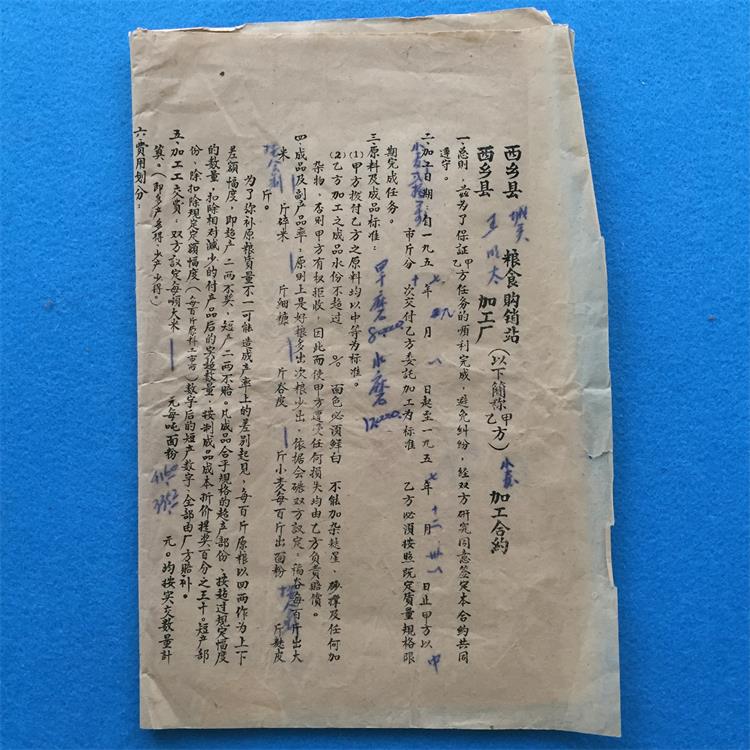 西乡县 城关 粮食购销站(以下简称甲方)
西乡县 加工厂(以下简称乙方) 小麦 加工合约
一.总则:兹为了保证甲乙方任务的顺利完成,避免纠纷,经双方研究同意签定本合约共同
遵守。
二.加工日期:自一九五七年 月 日起至一九五七年十二月卅一日止甲方以 中
市斤分 次交付乙方委託加工为标准 乙方必须按照既定質量規格限
期完成任务。
三.原料及成品标准:旱磨80000.水磨12000.
(1)甲方拨付乙方之原料均以中等为标准。
(2)乙方加工之成品水份不超过 %面色必须鲜白 不能加杂麸星、砂摻及任何加
杂物,否则甲方有权拒收,因此而使甲方遭受任何損失均由乙方负責赔償。
四.成品及副产品率:原則上是好粮多出次粮少出,依据会碾双方議定,稻谷每百斤出大
米 斤碎米 斤細糠 斤谷皮 斤小麦每百斤出面粉 斤麸皮
斤。
为了弥补原粮質量不一可能造成产率上的差别起見,每百斤原粮以四两作为上下
差額幅度,即超产二两不奖,短产二两不赔。凡成品合乎規格的超产部份、按超过規定幅度
的数量,扣除相对減少的付产品后的实超数量,按制成品成本折价提奖百分之三十。短产部
份,除扣除規定差額幅度(每百斤原料二市両)数字后的短产数字,全部由厂方赔补。
五.加工工夫費:双方議定每頓大米 元每吨面粉 元。均按实交数量計
算。(即多产多得,少产少得)。
六.費用划分: